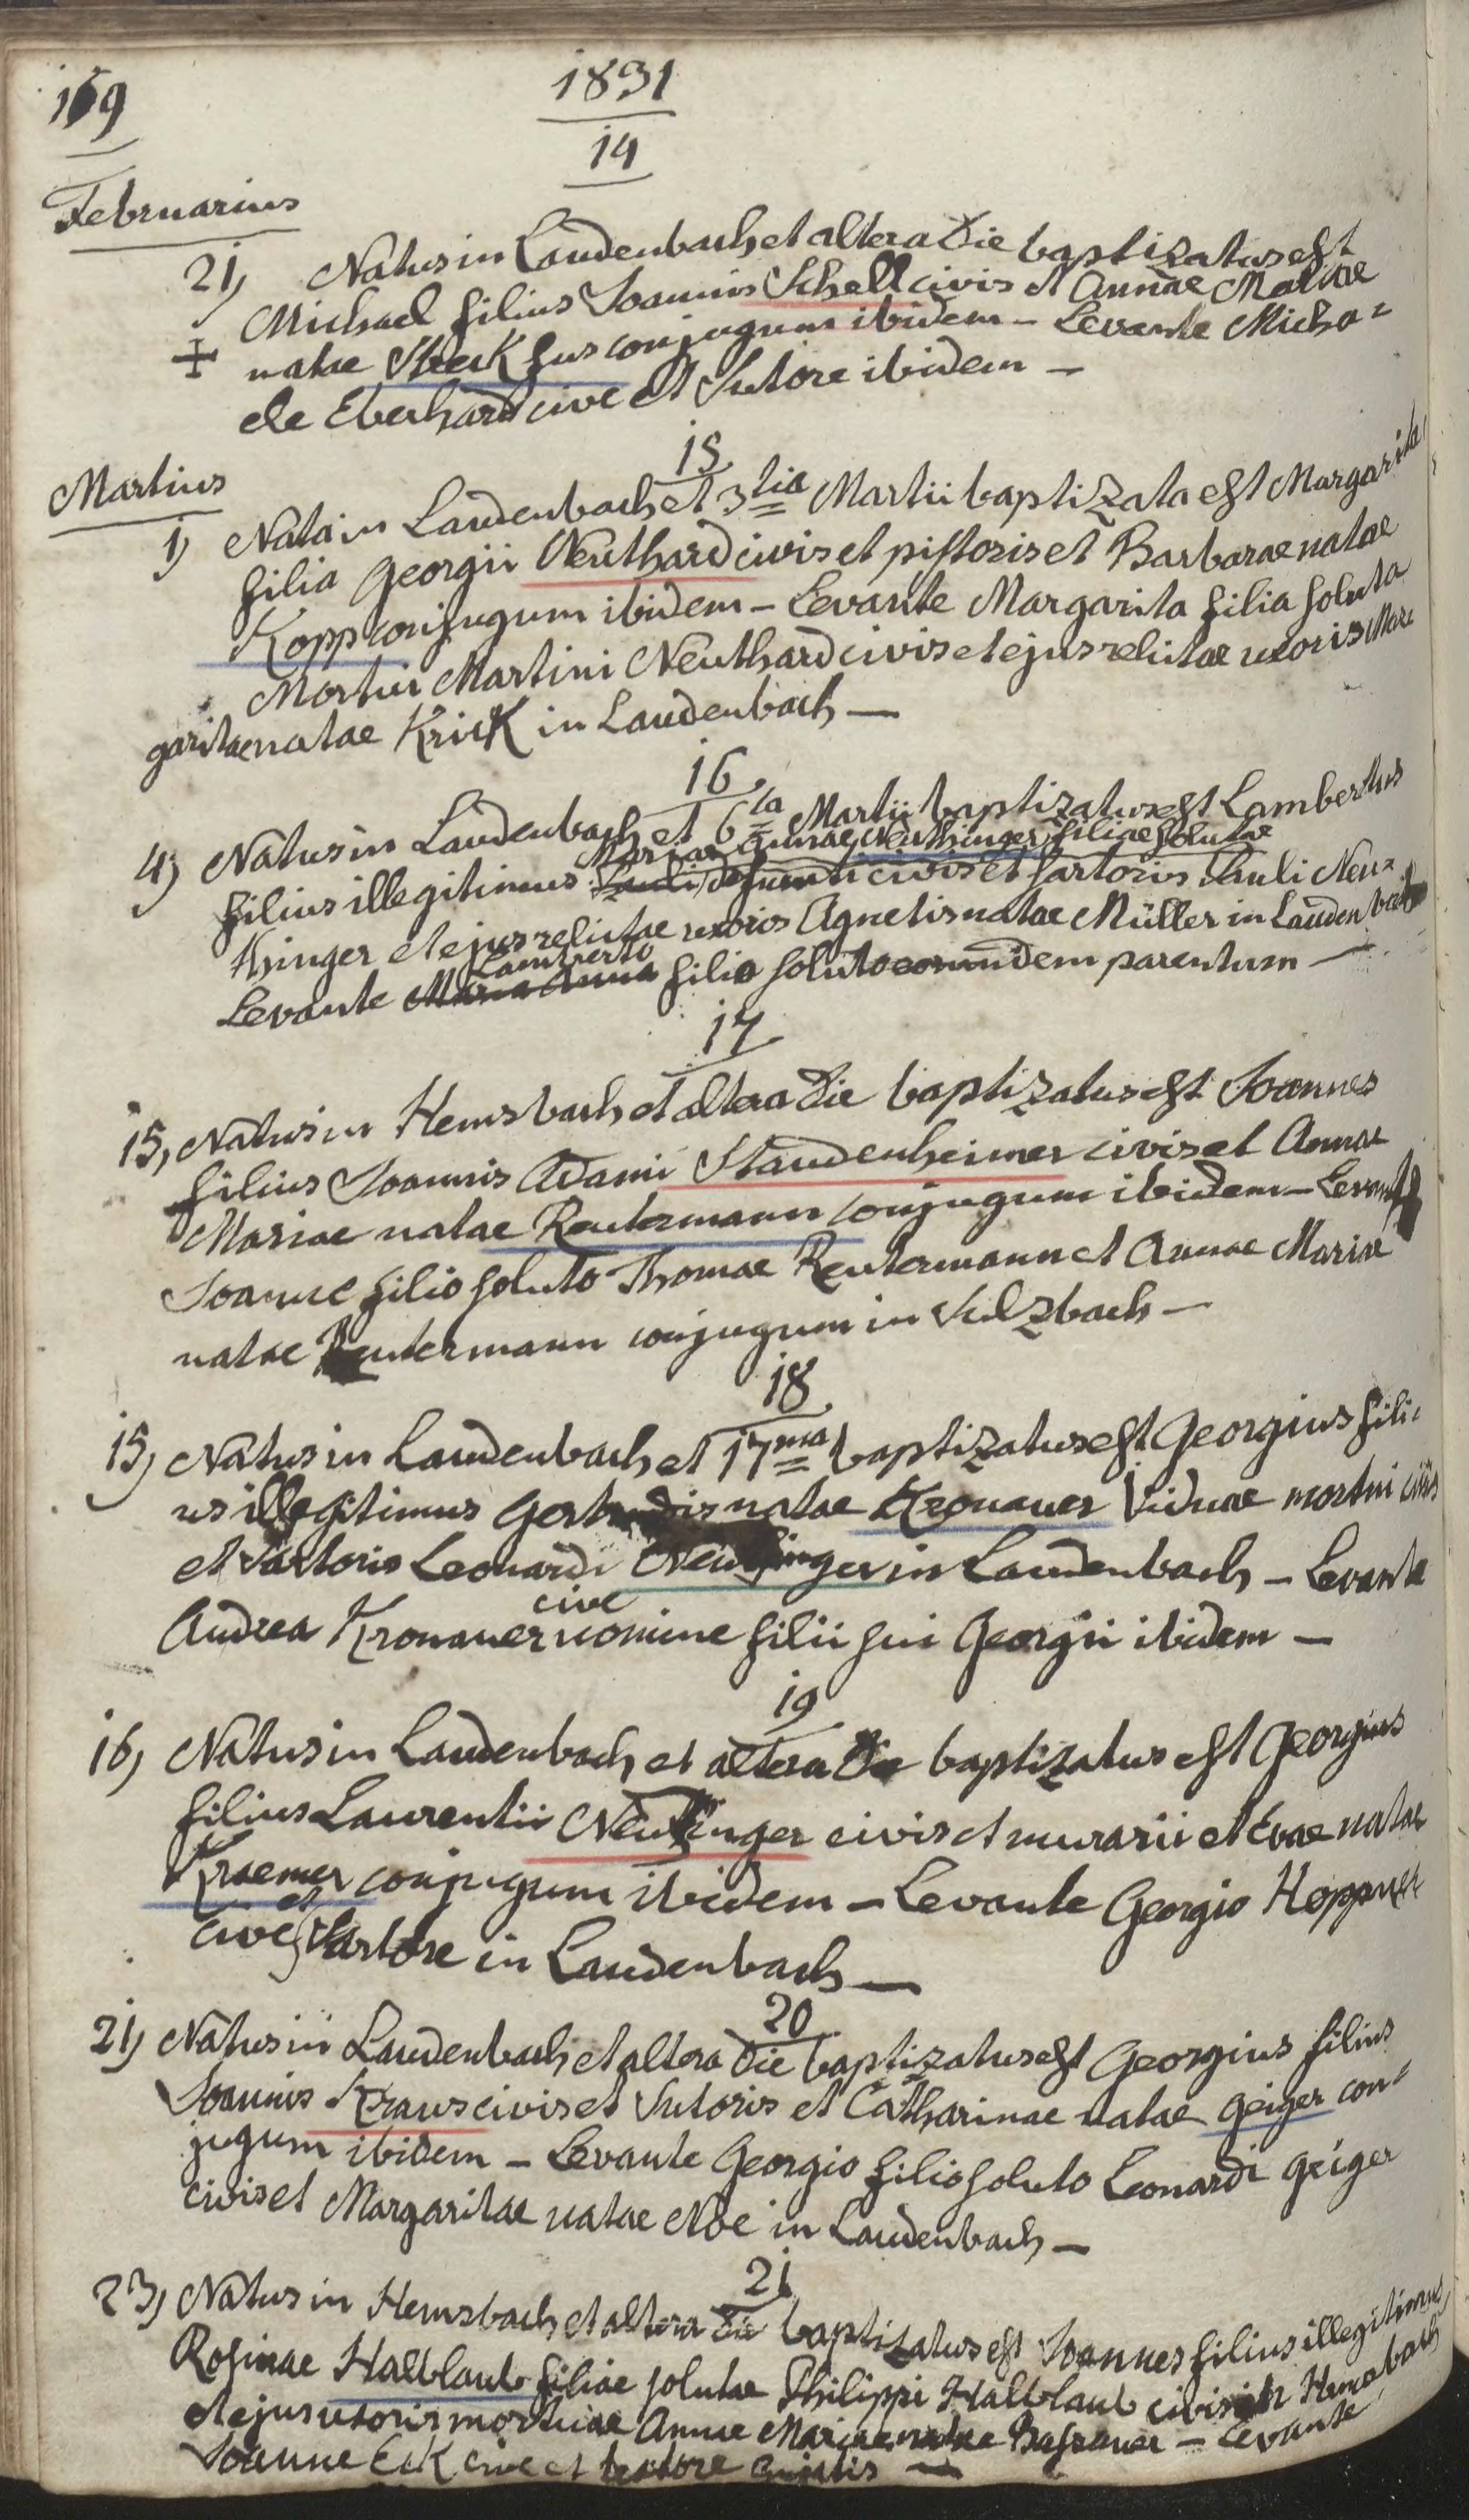 169
1831
14
Februarius
21) Natus in Laudenbach et altera die baptizatus est
Michael filius Joannis Schell civis et Annae Mariae
+ natae Steck hus conjugum ibidem - Levante Micha=
ele Eberhard cive et Sutore ibidem -
15
Martius
1) Nata in Laudenbach et 3tia Martii baptizata est Margarita
filia Georgii Neuthard civis et pistoris et Barbarae natae
Kopp conjugum ibidem - Levante Margarita filia soluta
Mortui Martini Neuthard civis et ejus relictae uxoris Mar
garitae natae Krick in Laudenbach -
16
4) Natus in Laudenbach et 6ta Martii baptizatus est Lambertus
Mariae Annae Neuthinger filiae solutae
filius illegitimus Pauli defuncti civis et sartoris Pauli Neu=
thinger et ejus relictae uxoris Agnetis natae Müller in Laudenbach
Lamberto
Levante Maria Anna filio soluto eorundem parentum -
17
15, Natus in Hemsbach et altera die baptizatus est Joannes
filius Joannis Adami Staudenheimer civis et Annae
Mariae natae Reutermann conjugum ibidem - Levante
Joanne filio soluto Thomae Reutermann et Annae Mariae
natae Reutermann conjugum in Sulzbach -
18
15) Natus in Laudenbach et 17ma baptizatus est Georgius fili=
us illegitimus Gertrudis natae Kronauer Viduae mortui civis
et Sartoris Leonardi Neuthinger in Laudenbach - Levante
cive
Andrea Kronauer nomine filii sui Georgii ibidem -
19
16) Natus in Laudenbach et altera die baptizatus est Georgius
filius Laurentii Neuthinger civis et murarii et Evae natae
Kraemer conjugum ibidem - Levante Georgio Hoppner
et
cive Sartore in Laudenbach -
20
21) Natus in Laudenbach et altera die baptizatus est Georgius filius
Joannis Kraus civis et Sutoris et Catharinae natae Geiger con=
jugum ibidem - Levante Georgio filio soluto Leonardi Geiger
civis et Margaritae natae Noe in Laudenbach -
21
23) Natus in Hemsbach et altera die baptizatus est Joannes filius illegitimus
Rosinae Halblaub filiae solutae Philippi Halblaub civis in Hemsbach
et ejus uxoris mortuae Annae Mariae natae - Levante
Joanne Eck cive et